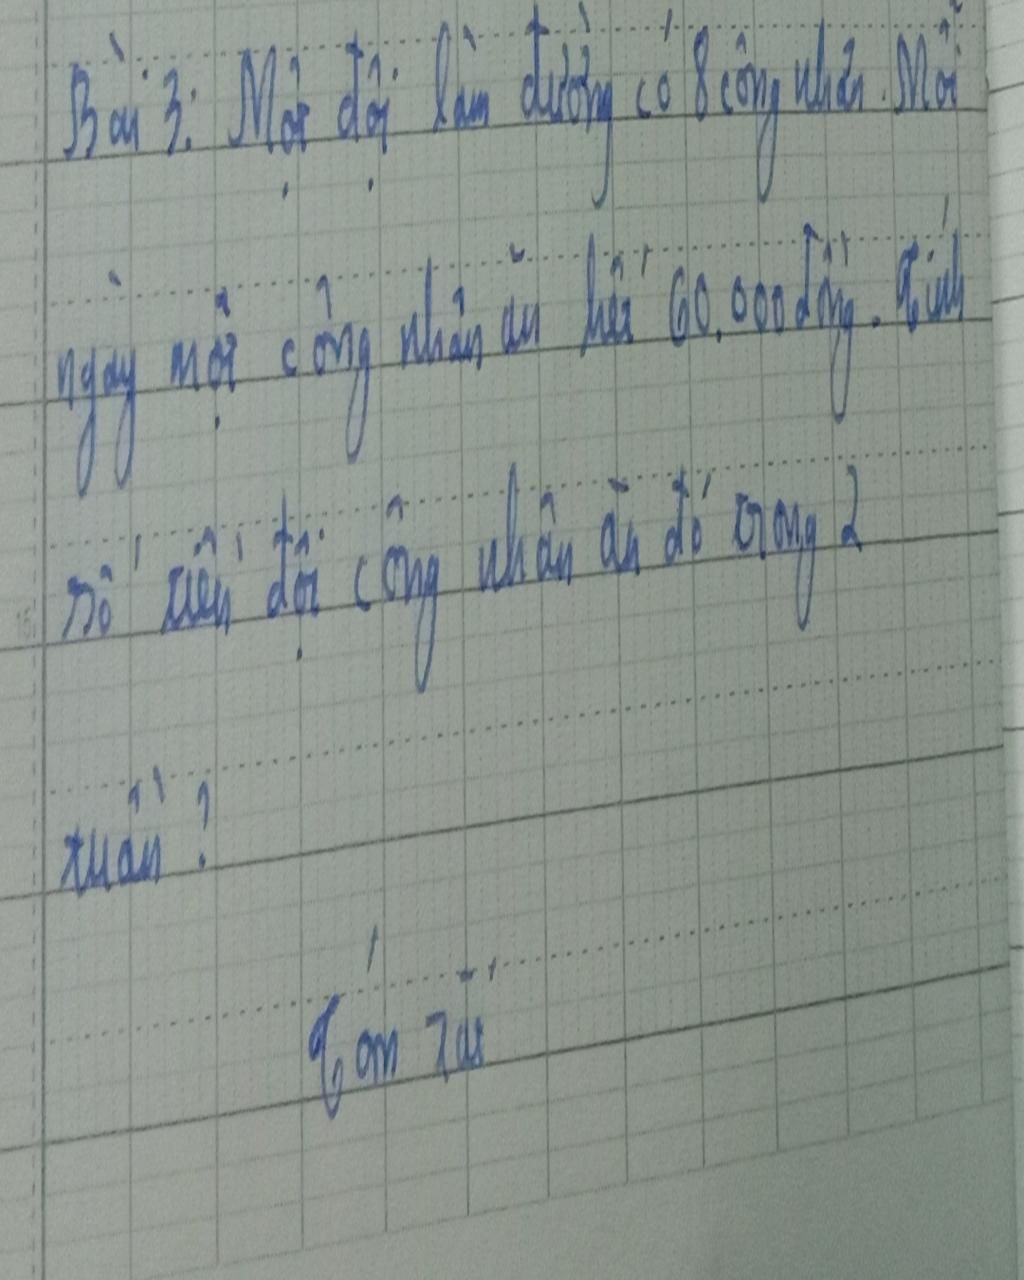 Bài 3: Một đội làm đường có 8 công nhân. Mỗi
ngày một công nhân ăn hết 60.000 đồng. Tính
số tiền đội công nhân ăn đó trong 2
tuần?
Tóm tắt